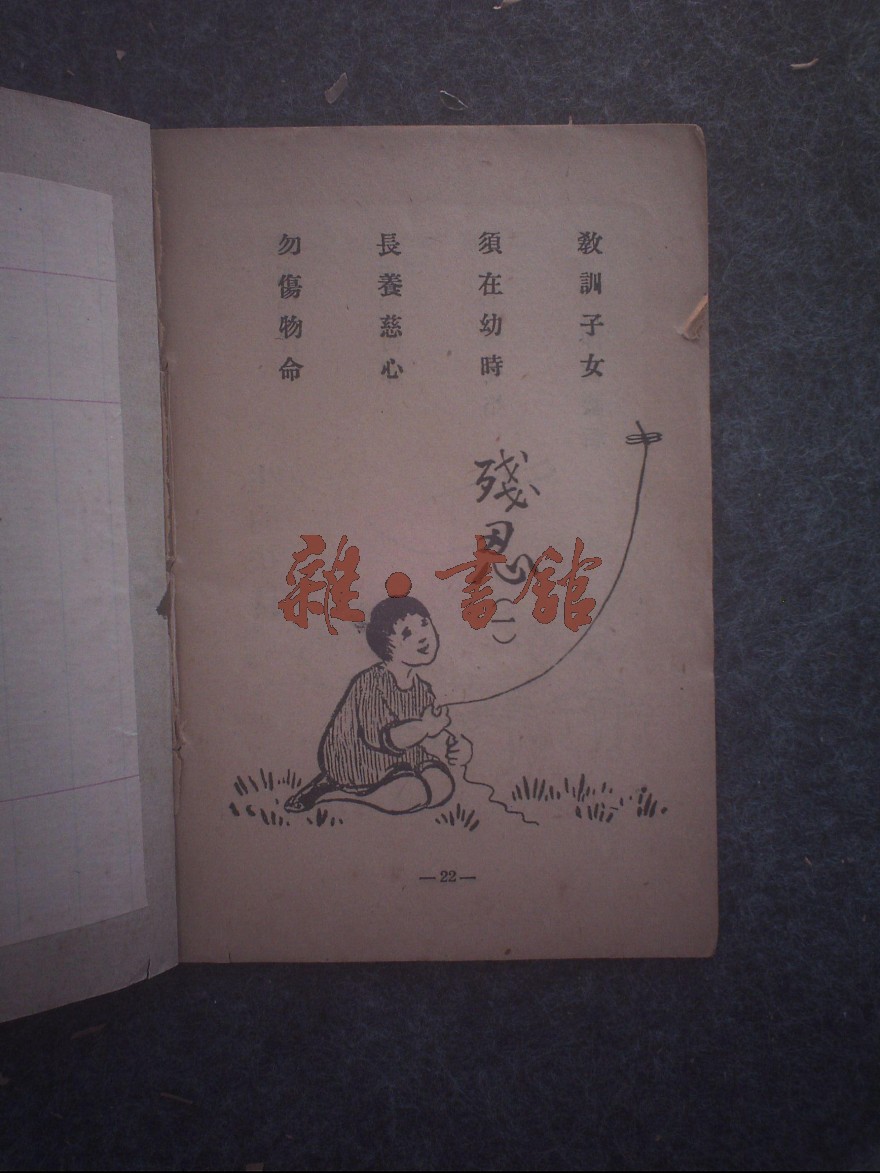 教訓子女
須在幼時
長養慈心
勿傷物命
殘忍(一)
雜·書館
—22—